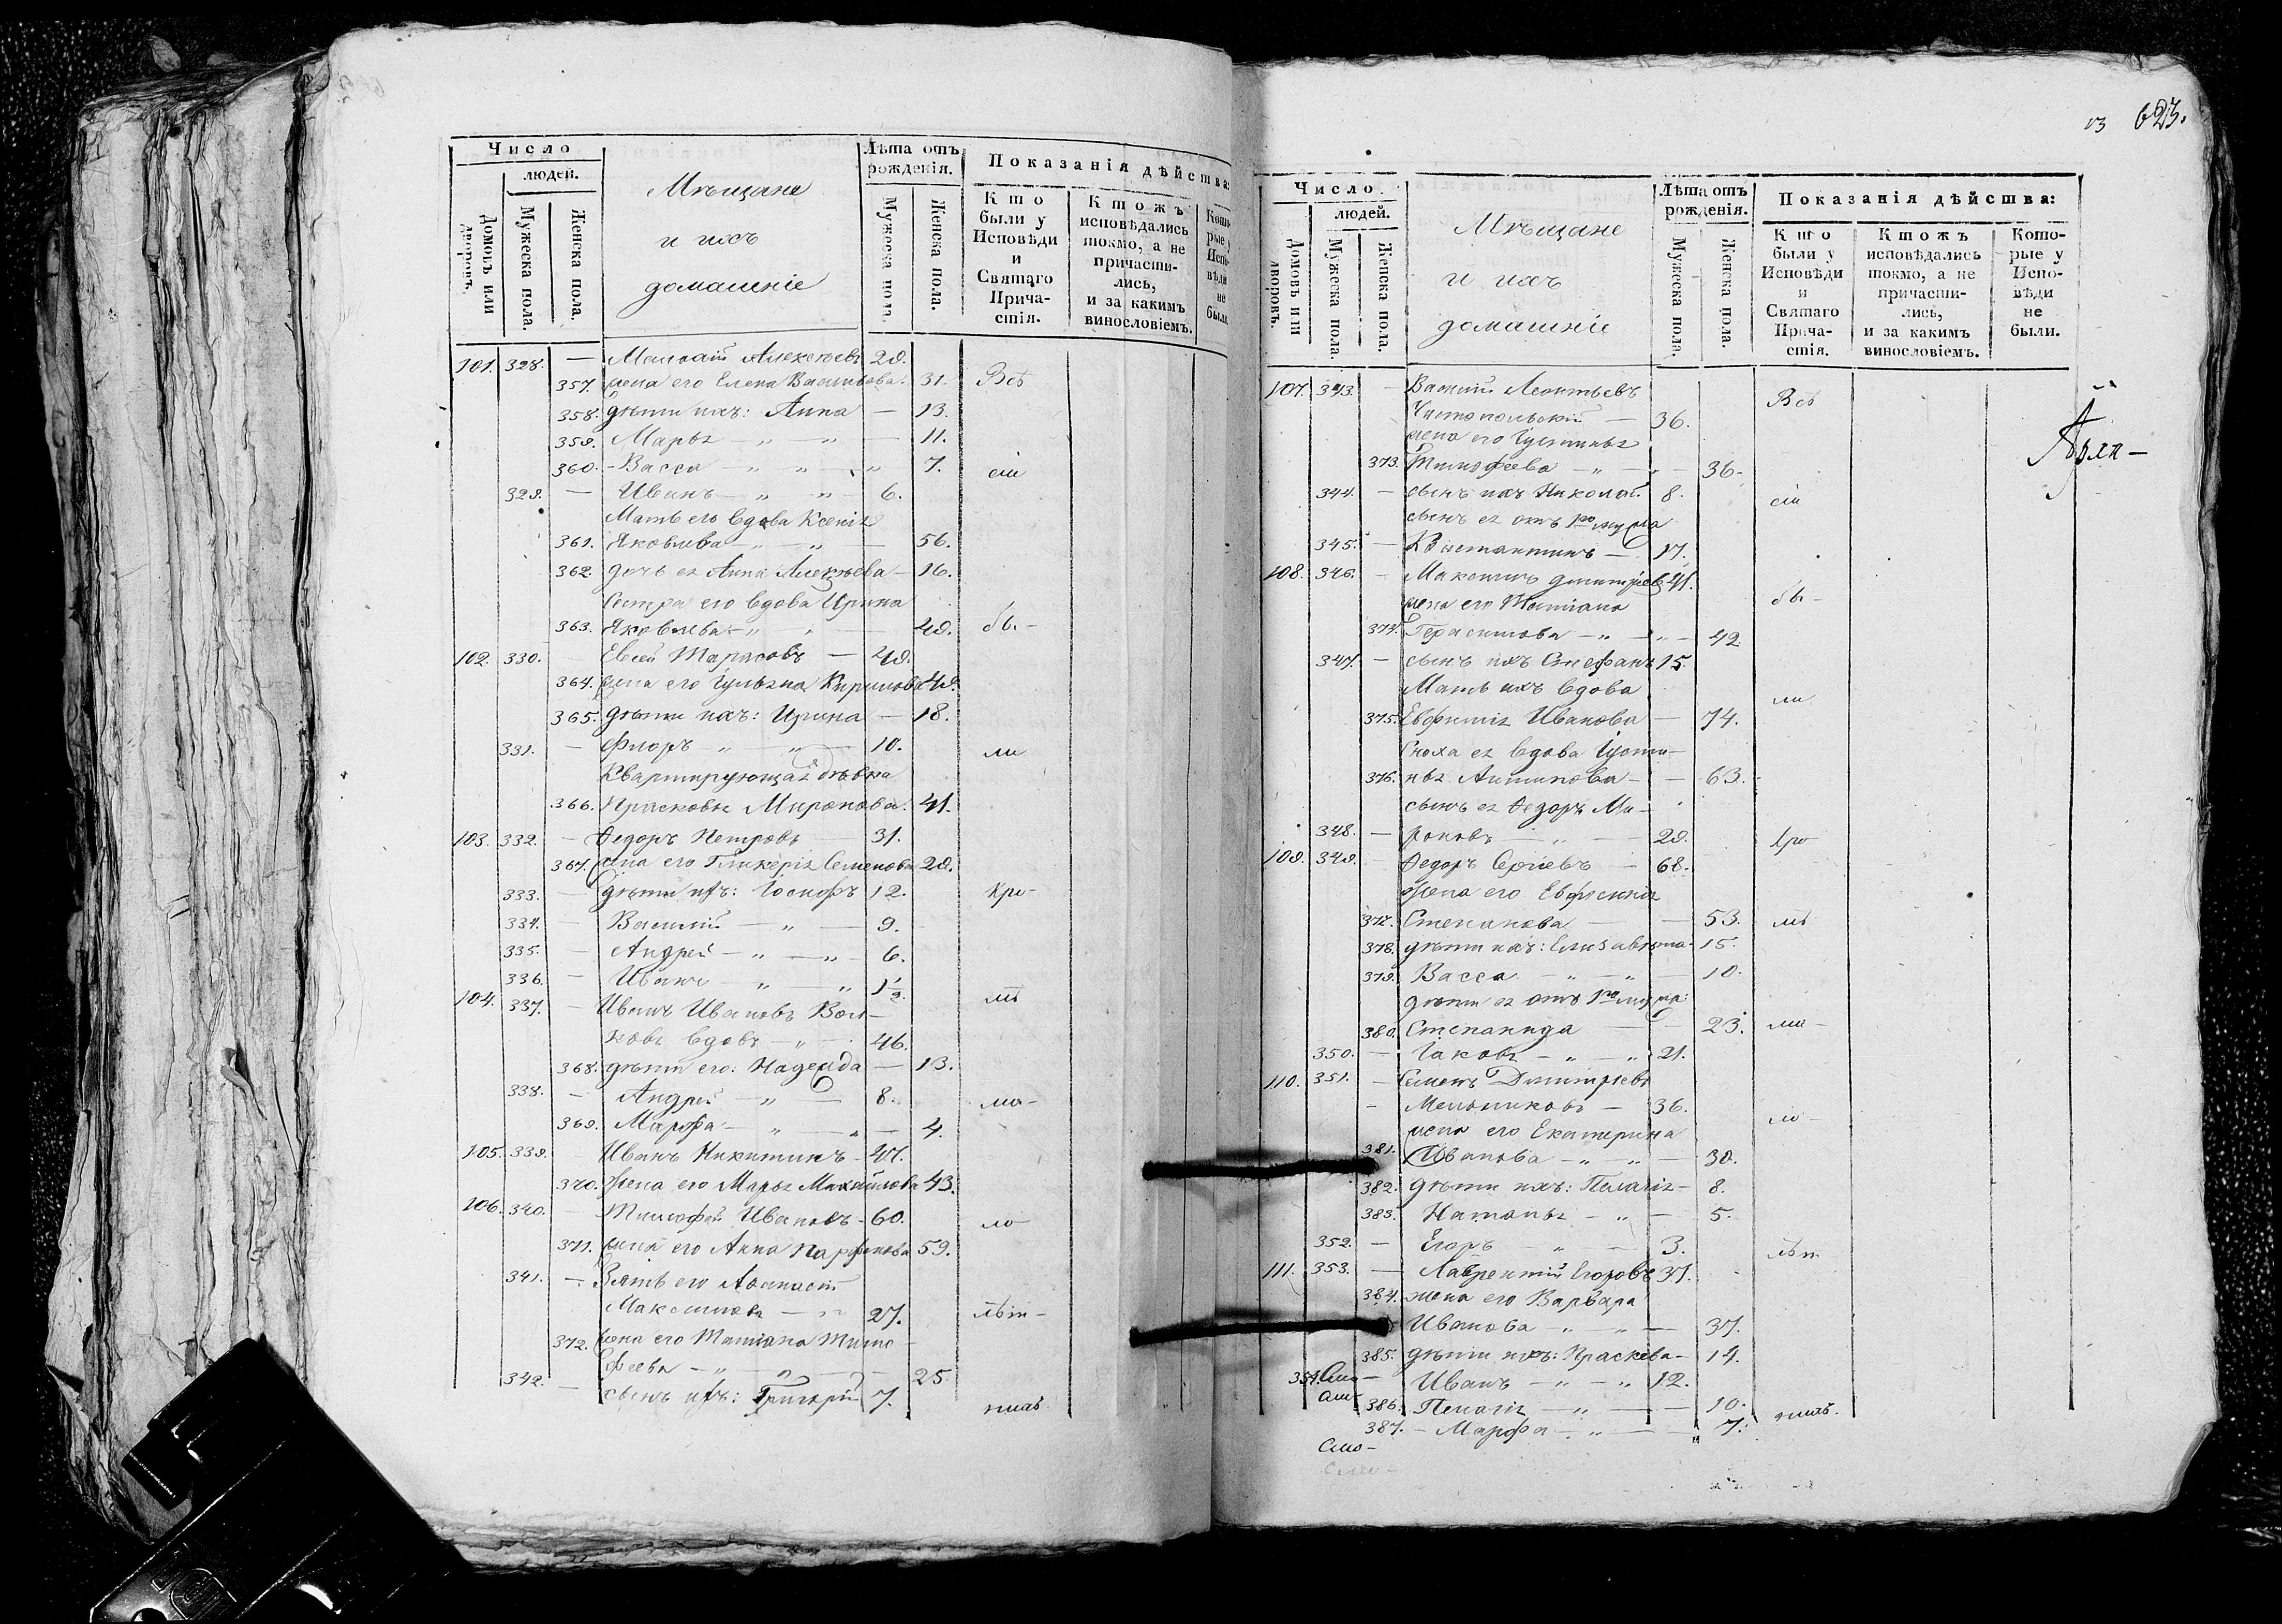 Число
людей.
Домовъ или дворовъ.
Мужеска пола.
Женска пола.
Мѣщане
и ихъ
домашніе
Лѣта отъ рожденія.
Мужеска пола.
Женска пола.
Показанія дѣйства:
Кто были у Исповѣди и Святаго Причастія.
Ктожъ исповѣдались токмо, а не причастились, и за какимъ винословіемъ.
Которые у Исповѣди не были.
101. 328. — Алексѣевъ 29.
357. жена его Елена Васильева. 31. Всѣ
358. дѣти ихъ: Анна — 13.
359. Марья — „ — „ — 11.
360. - Васса — „ „ „ 7. сіи
329. — Иванъ — „ „ — 6.
Мать его вдова Ксенія
361. Яковлева — „ — „ — 56.
362. дочь ея Анна Алексѣева — 16.
Сестра его вдова Ирина
363. Яковлева — „ — 49. бы-
102. 330. — Евсей Тарасовъ — 49.
364. жена его Іуліана Кирилова 49.
365. дѣти ихъ: Ирина — 18.
331. — Флоръ — „ — „ — 10. ли
Квартирующая дѣвка
366. Прасковья Миронова. 41.
103. 332. — Ѳедоръ Петровъ — 31.
367. жена его Гликерія Семенова 29.
333. — дѣти ихъ: Іосифъ 12. кро-
334. — Василій — „ — 9.
335. — Андрей — „ — „ — 6.
336. — Иванъ — „ „ 1½.
104. 337. — Иванъ Ивановъ Вол- мѣ
ковъ вдовъ — „ — 46.
368. дѣти его: Надежда — 13.
338. — Андрей — „ — 8. ма-
369. Марфа — „ — „ — 4.
105. 339. Иванъ Никитинъ — 47.
370. жена его Марья Михайлова 43.
106. 340. — Тимофей Ивановъ — 60. ло-
371. жена его Анна Парфенова 59.
341. — Зять его Аѳанасій
Максимовъ — „ 27. лѣт-
372. жена его Татіана Тимо-
феева — „ — „ — 25.
342. — сынъ ихъ: Григорій 7. нихъ
623.
Число
людей.
Домовъ или дворовъ.
Мужеска пола.
Женска пола.
Мѣщане
и ихъ
домашніе
Лѣта отъ рожденія.
Мужеска пола.
Женска пола.
Показанія дѣйства:
Кто были у Исповѣди и Святаго Причастія.
Ктожъ исповѣдались токмо, а не причастились, и за какимъ винословіемъ.
Которые у Исповѣди не были.
107. 343. — Василій Леонтьевъ Всѣ
Чистопольскій — 36.
жена его Іустинья
373. Тимофеева — „ — 36.
344. — сынъ ихъ Николай 8. сіи
сынъ ея отъ 1го мужа
345. — Константинъ — 17.
108. 346. — Максимъ Димитріевъ 41.
жена его Татіана бы-
374. Герасимова — „ — „ — 42
347. — сынъ ихъ Стефанъ 15.
Мать ихъ вдова ли
375. Евфимія Иванова — 74.
Сноха ея вдова Іусти-
376. нья Антипова — — 63.
сынъ ея Ѳедоръ Ми-
348. — роновъ — „ — 29. кро
109. 349. — Ѳедоръ Сергѣевъ — 68.
жена его Евфросинія
377. Степанова — — 53. мѣ
378. дѣти ихъ: Елизавѣта — 15.
379. Васса — „ — „ — 10.
дѣти ея отъ 1го мужа:
380. Степанида — — 23. ма-
350. — Іаковъ — „ — „ 21.
110. 351. — Семенъ Димитріевъ
- Мельниковъ — 36. ло-
жена его Екатерина
381. Иванова — „ — „ — 30.
382. дѣти ихъ: Пелагія — 8.
383. Наталья — „ — 5.
352. — Егоръ — „ — 3. лѣт
111. 353. — Лаврентій Егоровъ 37.
384. жена его Варвара
Иванова — „ — „ — 37.
385. дѣти ихъ: Праскева — 14.
354. — Иванъ — „ — „ 12.
386. Пелагія — „ — 10. нихъ.
387. — Марфа — „ — 7.